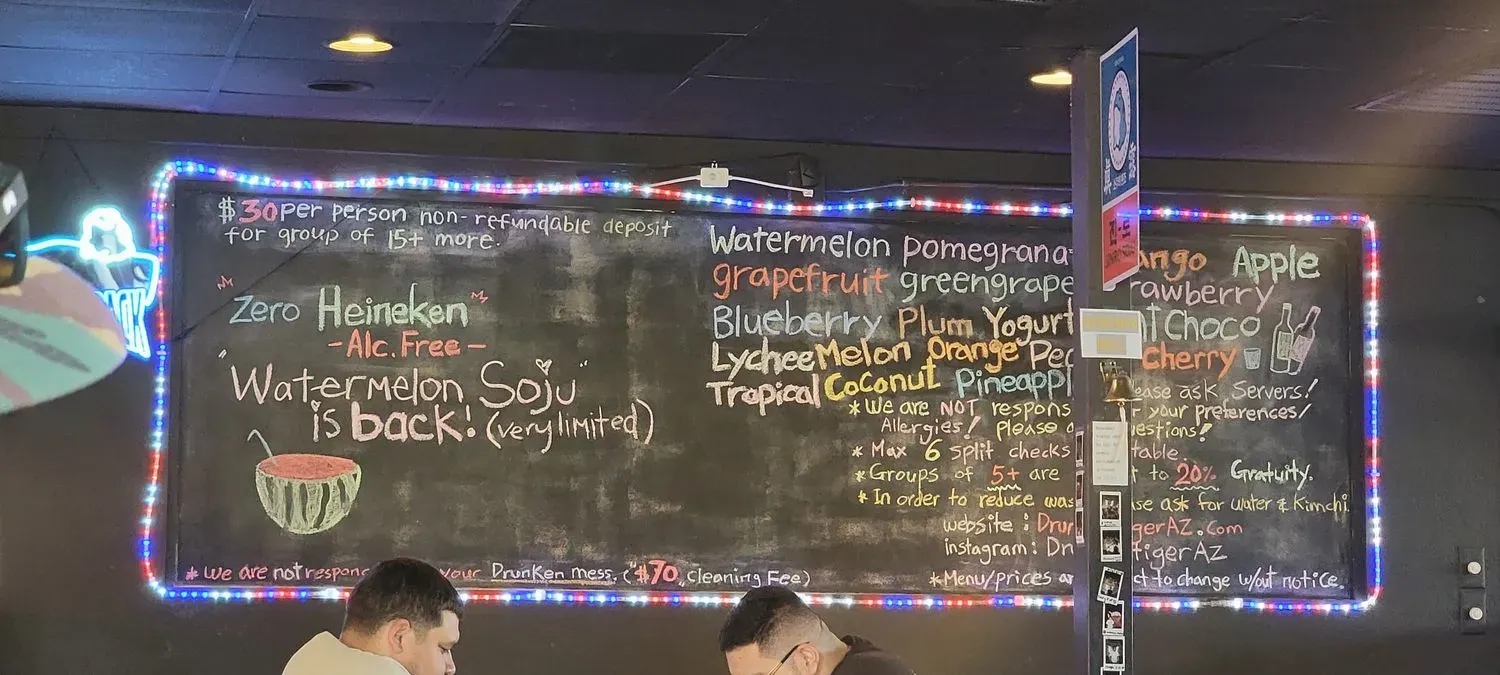 $30 per person non-refundable deposit
for group of 15+ more.
Zero Heineken
-Alc. Free-
"Watermelon Soju"
is back! (very limited)
* we are not responc your Drunken mess. ("$70" cleaning Fee)
Watermelon pomegrana ango Apple
grapefruit greengrape rawberry
Blueberry Plum Yogurt t Choco
Lychee Melon Orange Pea Cherry
Tropical Coconut Pineappl
ease ask Servers!
* We are NOT respons r your preferences/
Allergies! Please a uestions!
* Max 6 split checks table.
* Groups of 5+ are t to 20% Gratuity.
* In order to reduce was se ask for water & Kimchi
website: Drun gerAZ.com
instagram: Dr tigerAZ
* Menu/prices ar ct to change w/out notice.